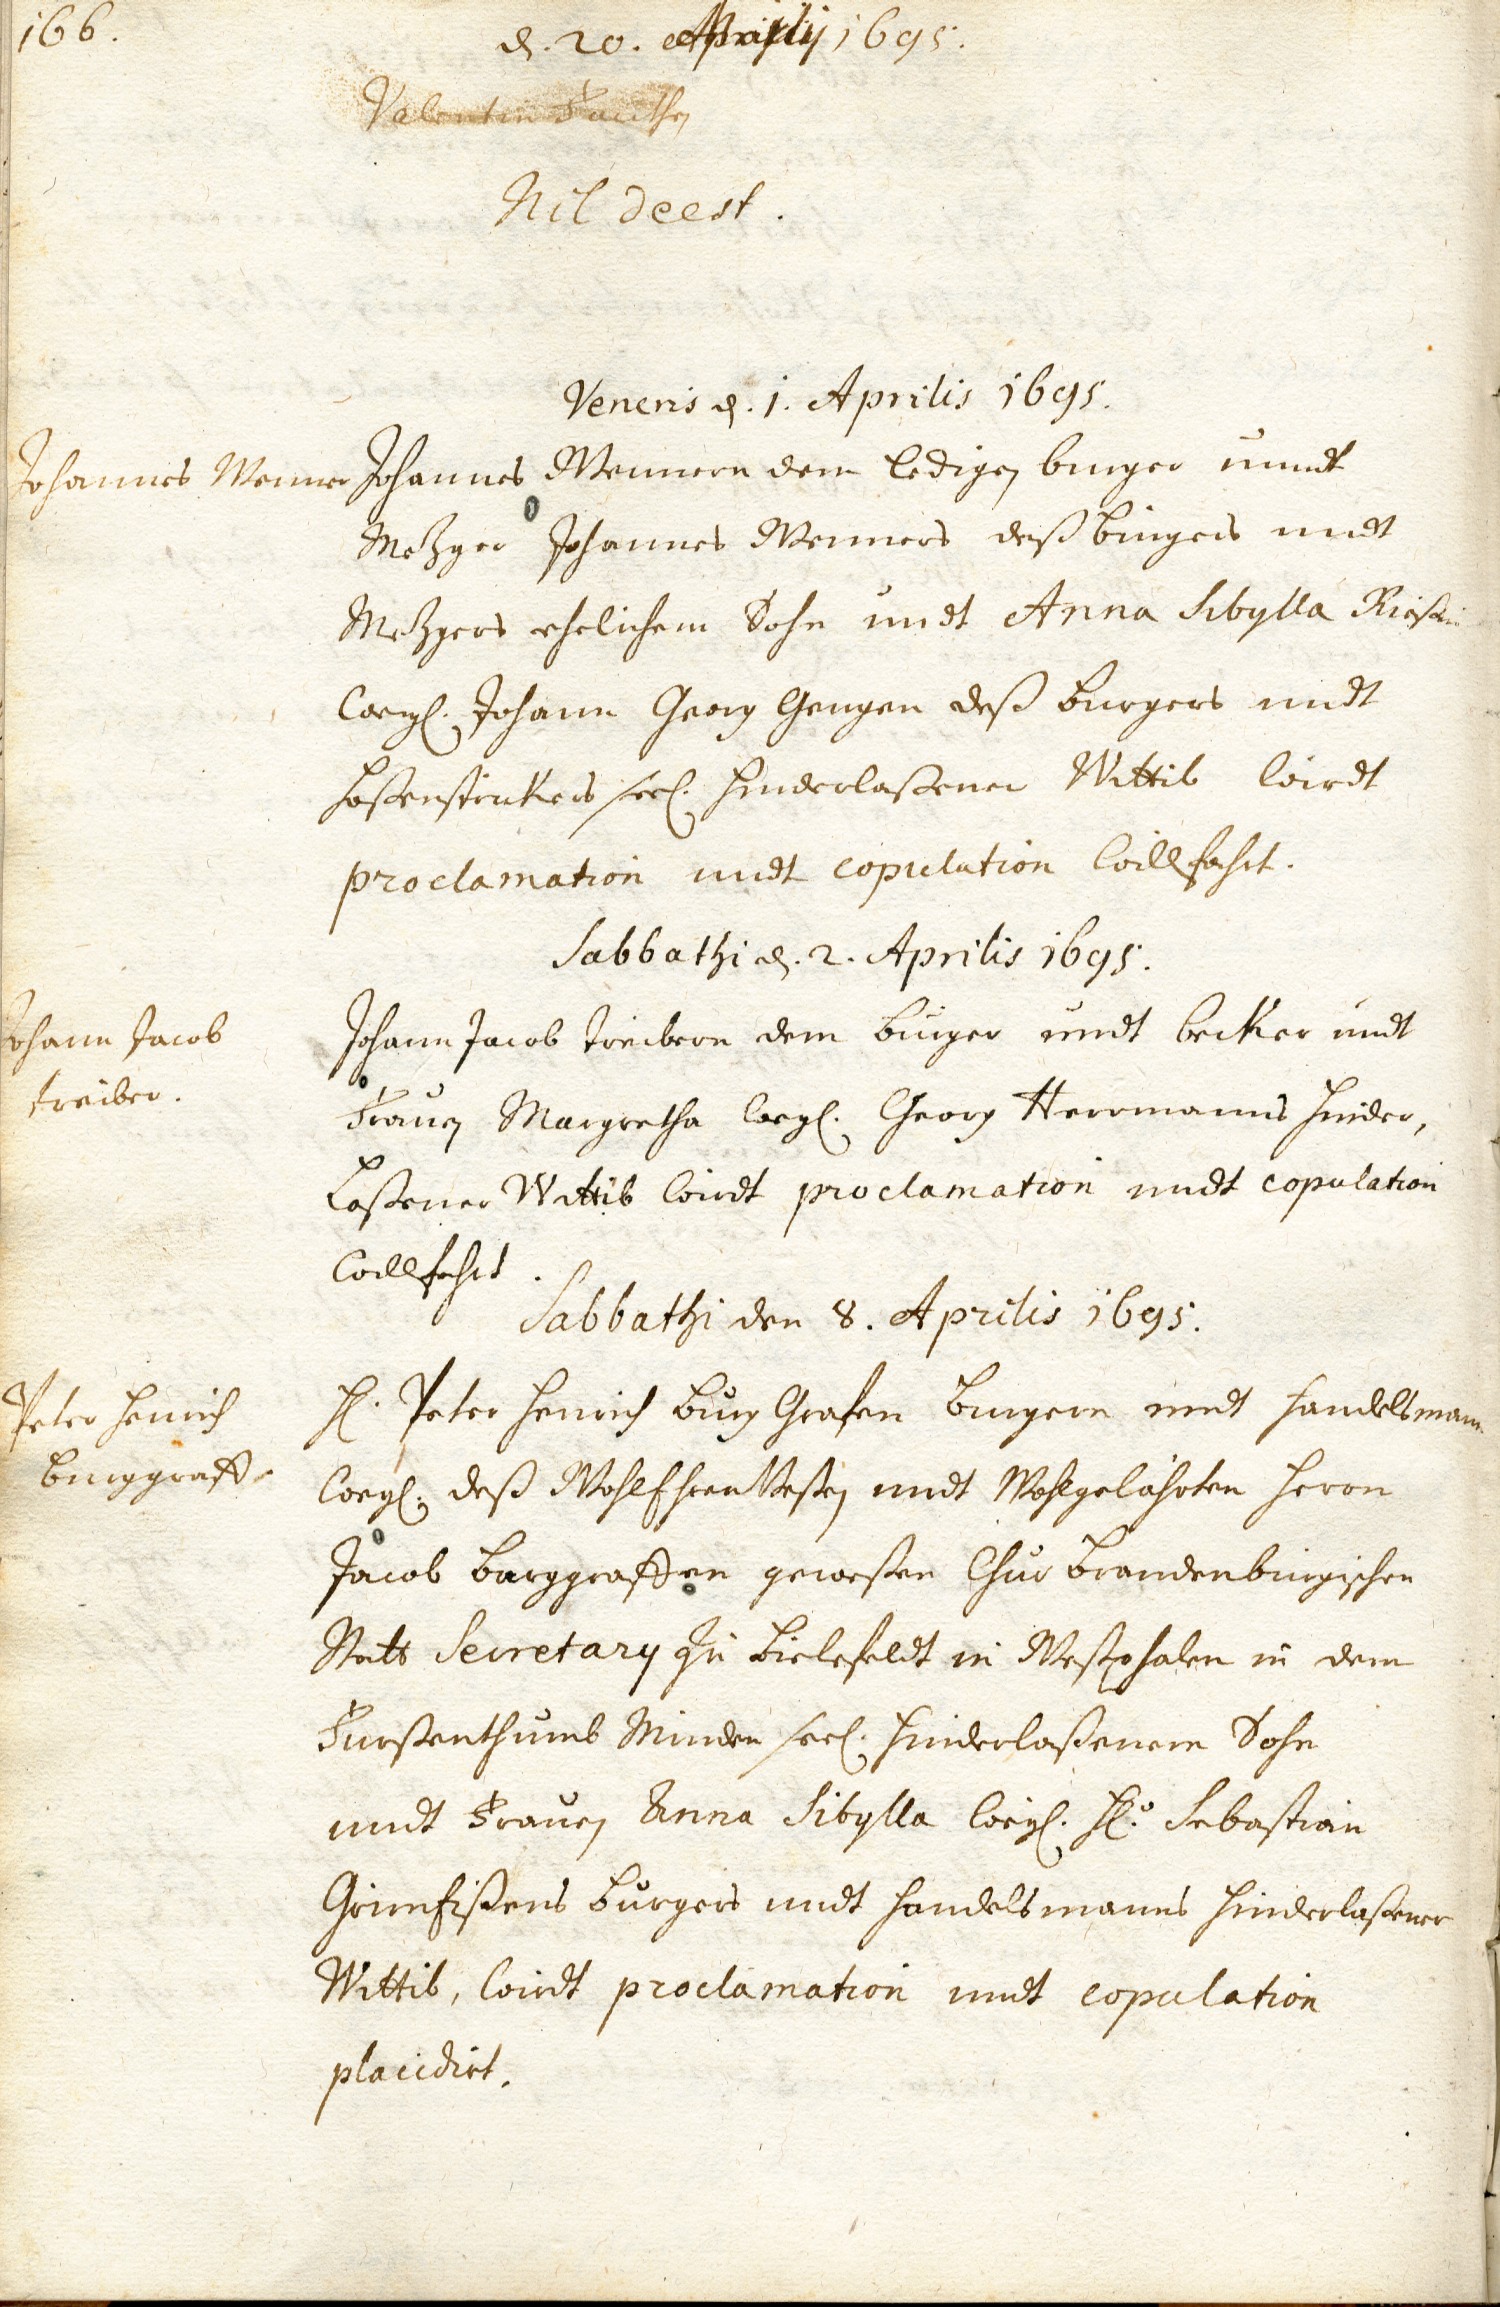 166.
d. 20. Aprilij 1695.
Valentin Fauthen
Nil deest.
Veneris d. 1. Aprilis 1695.
Johannes Wenner
Johannes Wennern dem ledigen burger undt
Metzger Johannes Wenners deß burgers undt
Metzgers ehelichem Sohn undt Anna Sibylla
weyl. Johann Georg Gengen deß burgers undt
hoßenstrickers seel. hinderlaßener Wittib wirdt
proclamation undt copulation willfahrt.
Sabbathi d. 2. Aprilis 1695.
Johann Jacob
treiber.
Johann Jacob treibern dem burger undt becker undt
Frauen Margretha weyl. Georg Herrmanns hinder,
laßener Wittib wirdt proclamation undt copulation
willfahrt.
Sabbathi den 8. Aprilis 1695.
Peter Henrich
burggraff
H. Peter Henrich burg Grafen burgern undt handelsmann
weyl. deß WohlEhrenVesten undt Wohlgelährten Herrn
Jacob burggraffen geweßen Chur brandenburgischen
Statt Secretary zu bielefeldt in Westphalen in dem
Furstenthumb Minden seel. hinderlaßenem Sohn
undt Frauen Anna Sibylla weyl. H. Sebastian
burgers undt handelsmanns hinderlaßener
Wittib, wirdt proclamation undt copulation
placidirt.